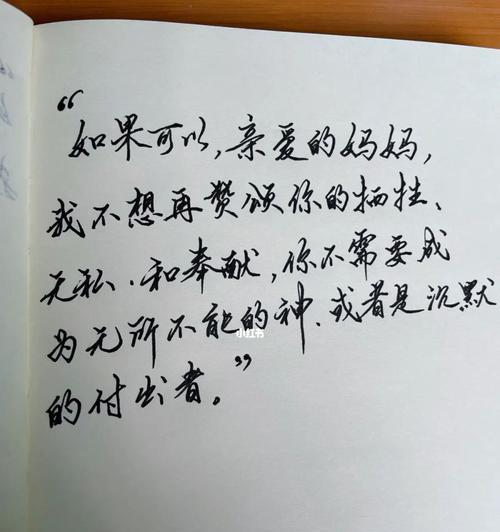 “如果可以,亲爱的妈妈,
我不想再赞颂你的牺牲、
无私、和奉献,你不需要成
为无所不能的神、或者是沉默
的付出者。”
小红书